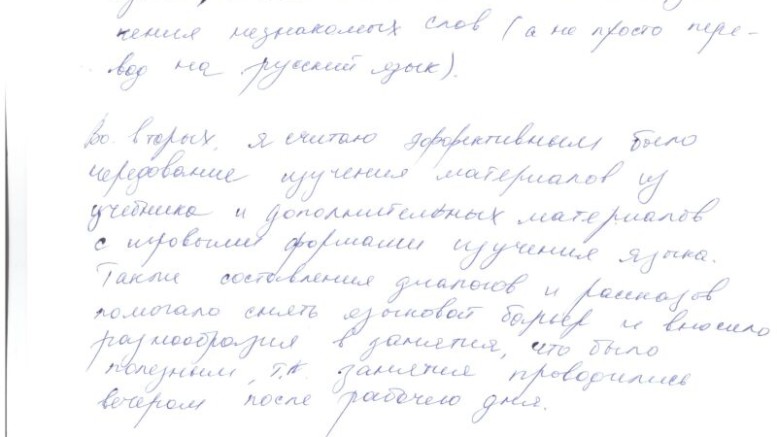 чения незнакомых слов (а не просто пере-
вод на русский язык).
Во вторых, я считаю эффективным было
чередование изучения материалов из
учебника и дополнительных материалов
с игровыми формами изучения языка.
Также составления диалогов и рассказов
помогало снять языковой барьер и вносило
разнообразия в занятия, что было
полезным, т.к. занятия проводились
вечером после рабочего дня.